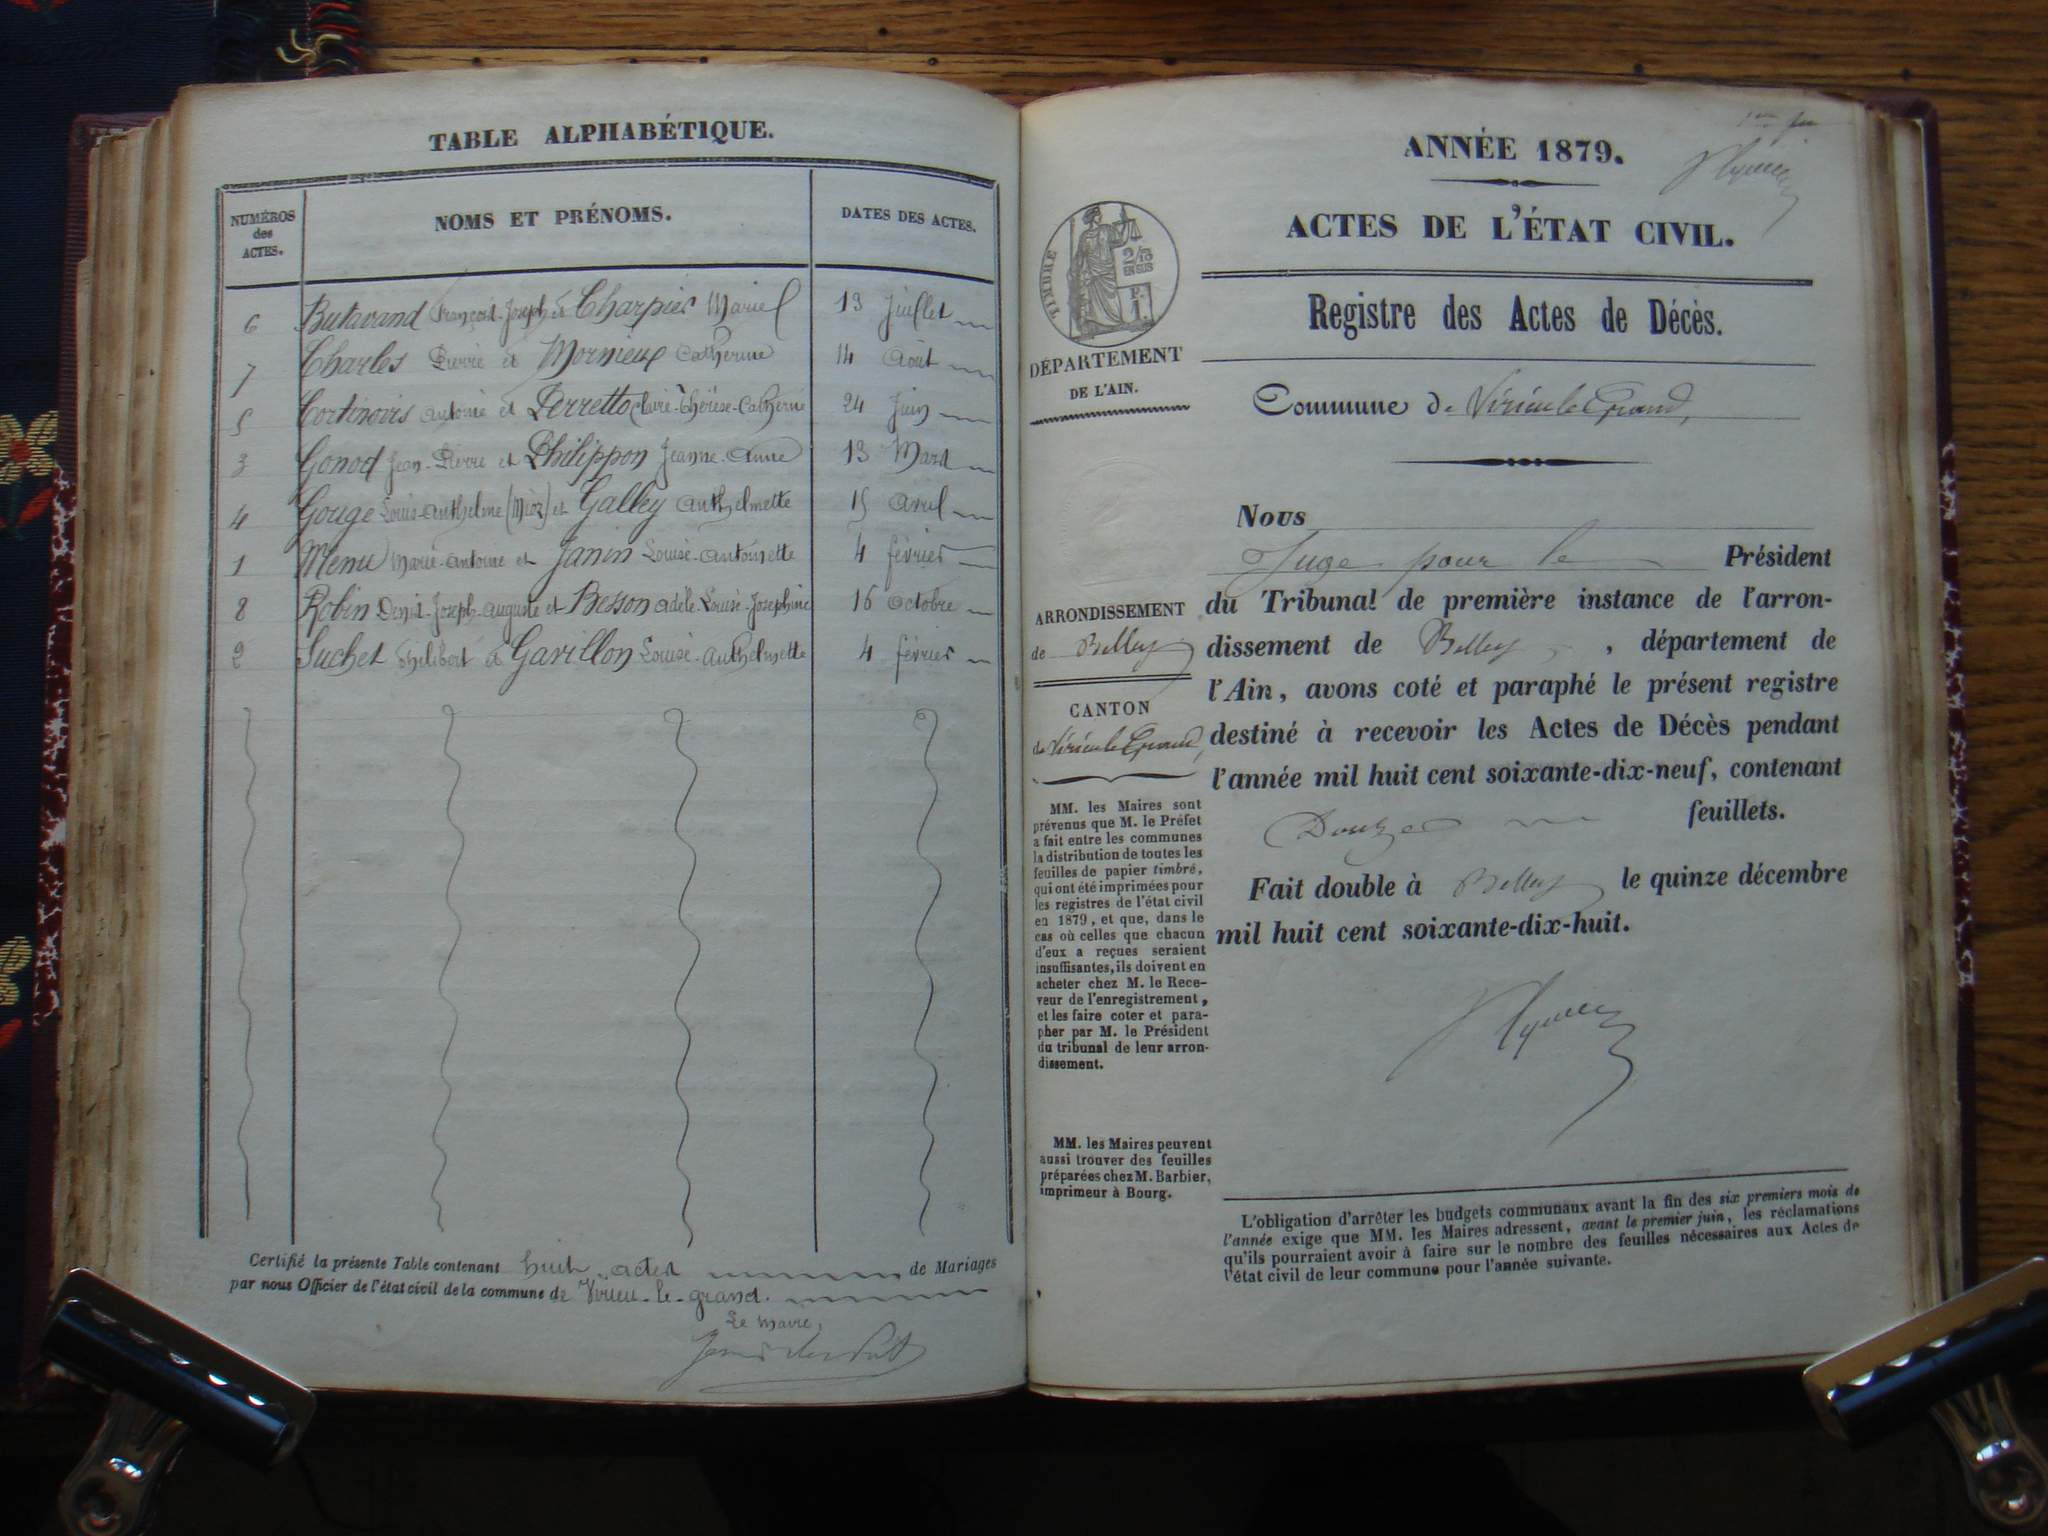 TABLE ALPHABÉTIQUE.
NUMÉROS des ACTES. NOMS ET PRÉNOMS. DATES DES ACTES.
6 Butavand François-Joseph et Charpier Marie 13 Juillet
7 Charles Pierre et Mornieux Catherine 14 Août
5 Cortinovis Antoine et Perretto Claire-Thérèse-Catherine 24 Juin
3 Gonod Jean-Pierre et Philippon Jeanne-Anne 13 Mars
4 Gouge Louis-Anthelme (Mioz) et Galley Anthelmette 15 Avril
1 Menu Marie-Antoine et Janin Louise-Antoinette 4 février
8 Robin Denis-Joseph-Auguste et Besson Adèle-Louise-Joséphine 16 octobre
2 Suchet Philibert et Gavillon Louise-Anthelmette 4 février
Certifié la présente Table contenant huit actes de Mariages
par nous Officier de l'état civil de la commune de Virieu-le-grand.
Le Maire,
ANNÉE 1879.
ACTES DE L'ÉTAT CIVIL.
TIMBRE
2/10
EN SUS
DÉPARTEMENT
DE L'AIN.
Registre des Actes de Décès.
Commune de Virieu le Grand,
ARRONDISSEMENT
de Belley
CANTON
de Virieu le Grand,
MM. les Maires sont
prévenus que M. le Préfet
a fait entre les communes
la distribution de toutes les
feuilles de papier timbré,
qui ont été imprimées pour
les registres de l'état civil
en 1879, et que, dans le
cas où celles que chacun
d'eux a reçues seraient
insuffisantes, ils doivent en
acheter chez M. le Rece-
veur de l'enregistrement,
et les faire coter et para-
pher par M. le Président
du tribunal de leur arron-
dissement.
MM. les Maires peuvent
aussi trouver des feuilles
préparées chez M. Barbier,
imprimeur à Bourg.
Nous
Juge pour le Président
du Tribunal de première instance de l'arron-
dissement de Belley, département de
l'Ain, avons coté et paraphé le présent registre
destiné à recevoir les Actes de Décès pendant
l'année mil huit cent soixante-dix-neuf, contenant
Douze feuillets.
Fait double à Belley le quinze décembre
mil huit cent soixante-dix-huit.
L'obligation d'arrêter les budgets communaux avant la fin des six premiers mois de
l'année exige que MM. les Maires adressent, avant le premier juin, les réclamations
qu'ils pourraient avoir à faire sur le nombre des feuilles nécessaires aux Actes de
l'état civil de leur commune pour l'année suivante.